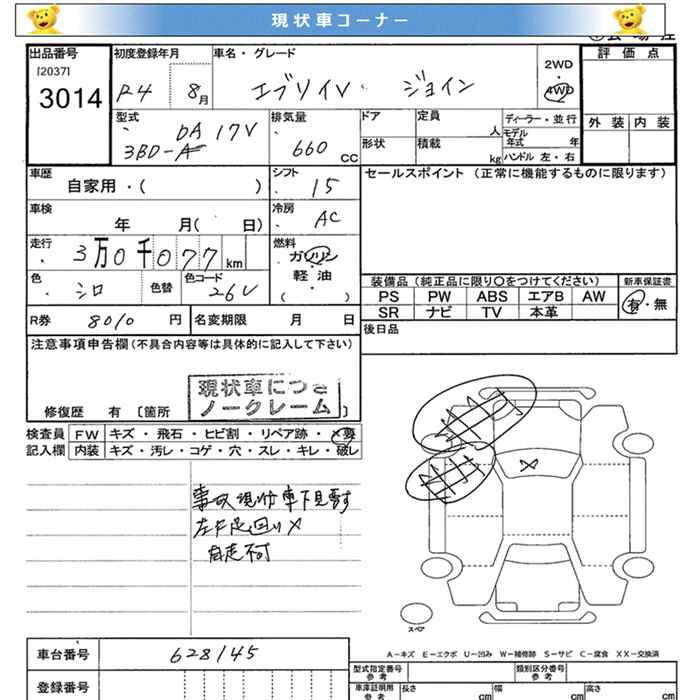 現状車コーナー
出品番号 初度登録年月 車名・グレード
[2037]
3014
R4 8月 エブリイV ジョイン 2WD
4WD
評価点
外装 内装
型式 排気量 ドア 定員 人 ディーラー・並行
DA17V
3BD-
660 CC
形状 積載 kg
モデル年式 年
ハンドル 左・右
車歴 自家用・( )
シフト I5
セールスポイント (正常に機能するものに限ります)
車検 年 月( 日)
冷房 AC
走行 3万0千077km
燃料 ガソリン
軽・油
( )
色 シロ 色替 色コード 26U
装備品 (純正品に限り○をつけてください) 新車保証書
PS PW ABS エアB AW 有・無
SR ナビ TV 本革
R券 8010 円 名変期限 月 日
後日品
注意事項申告欄(不具合内容等は具体的に記入して下さい)
現状車につき
ノークレーム
修復歴 有 [箇所 ]
検査員 FW キズ・飛石・ヒビ割・リペア跡・×要
記入欄 内装 キズ・汚レ・コゲ・穴・スレ・キレ・破レ
事故現状車下見要す
左右足回り×
自走不可
スペア
A-キズ E-エクボ U-凹み W-補修跡 S-サビ C-腐食 XX-交換済
車台番号 628145
登録番号
型式指定番号 参考 類別区分番号 参考
車庫証明用 参考 長さ cm 幅 cm 高さ cm